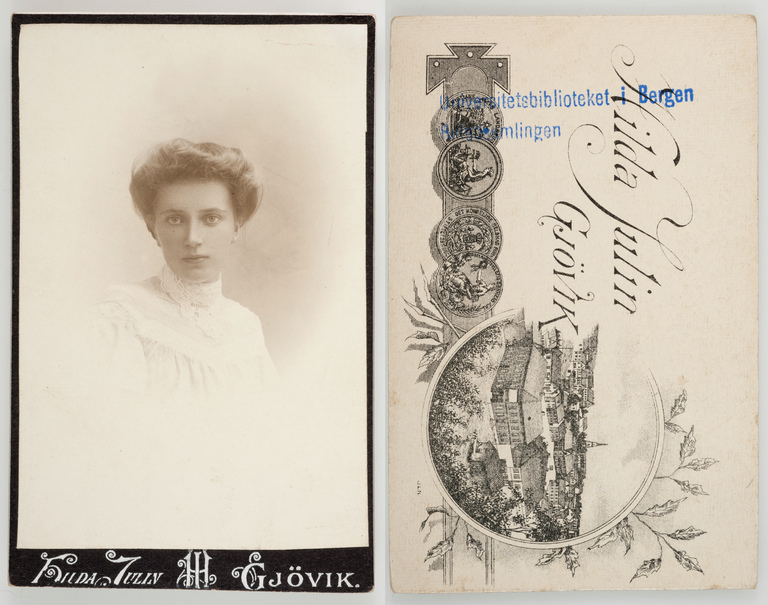 HILDA JULIN
GJÖVIK.
Universitetsbiblioteket i Bergen
Billedsamlingen
Hilda Julin
GJÖVIK